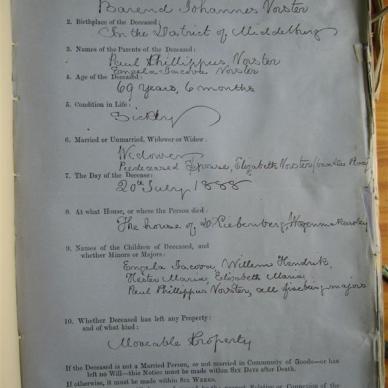 Barend Johannes Vorster
2. Birthplace of the Deceased:
In the District of Middelburg
3. Names of the Parents of the Deceased:
Paul Phillippus Vorster
Engela Jacova Vorster
4. Age of the Deceased:
69 Years, 6 months
5. Condition in Life:
Sickly
6. Married or Unmarried, Widower or Widow:
Widower
Predeceased Spouse, Elizabeth Vorster
7. The Day of the Decease:
20th July 1888
8. At what House, or where the Person died:
The house of Liebenberg,
9. Names of the Children of Deceased, and
whether Minors or Majors:
Engela Jacova, Willem Hendrik,
Hester Maria, Elizabeth Maria,
Paul Phillippus Vorster, all being majors
10. Whether Deceased has left any Property:
and of what kind:
Moveable Property
If the Deceased is not a Married Person, or not married in Community of Goods—or has
left no Will—this Notice must be made within Six Days after Death.
If otherwise, it must be made within Six Weeks.